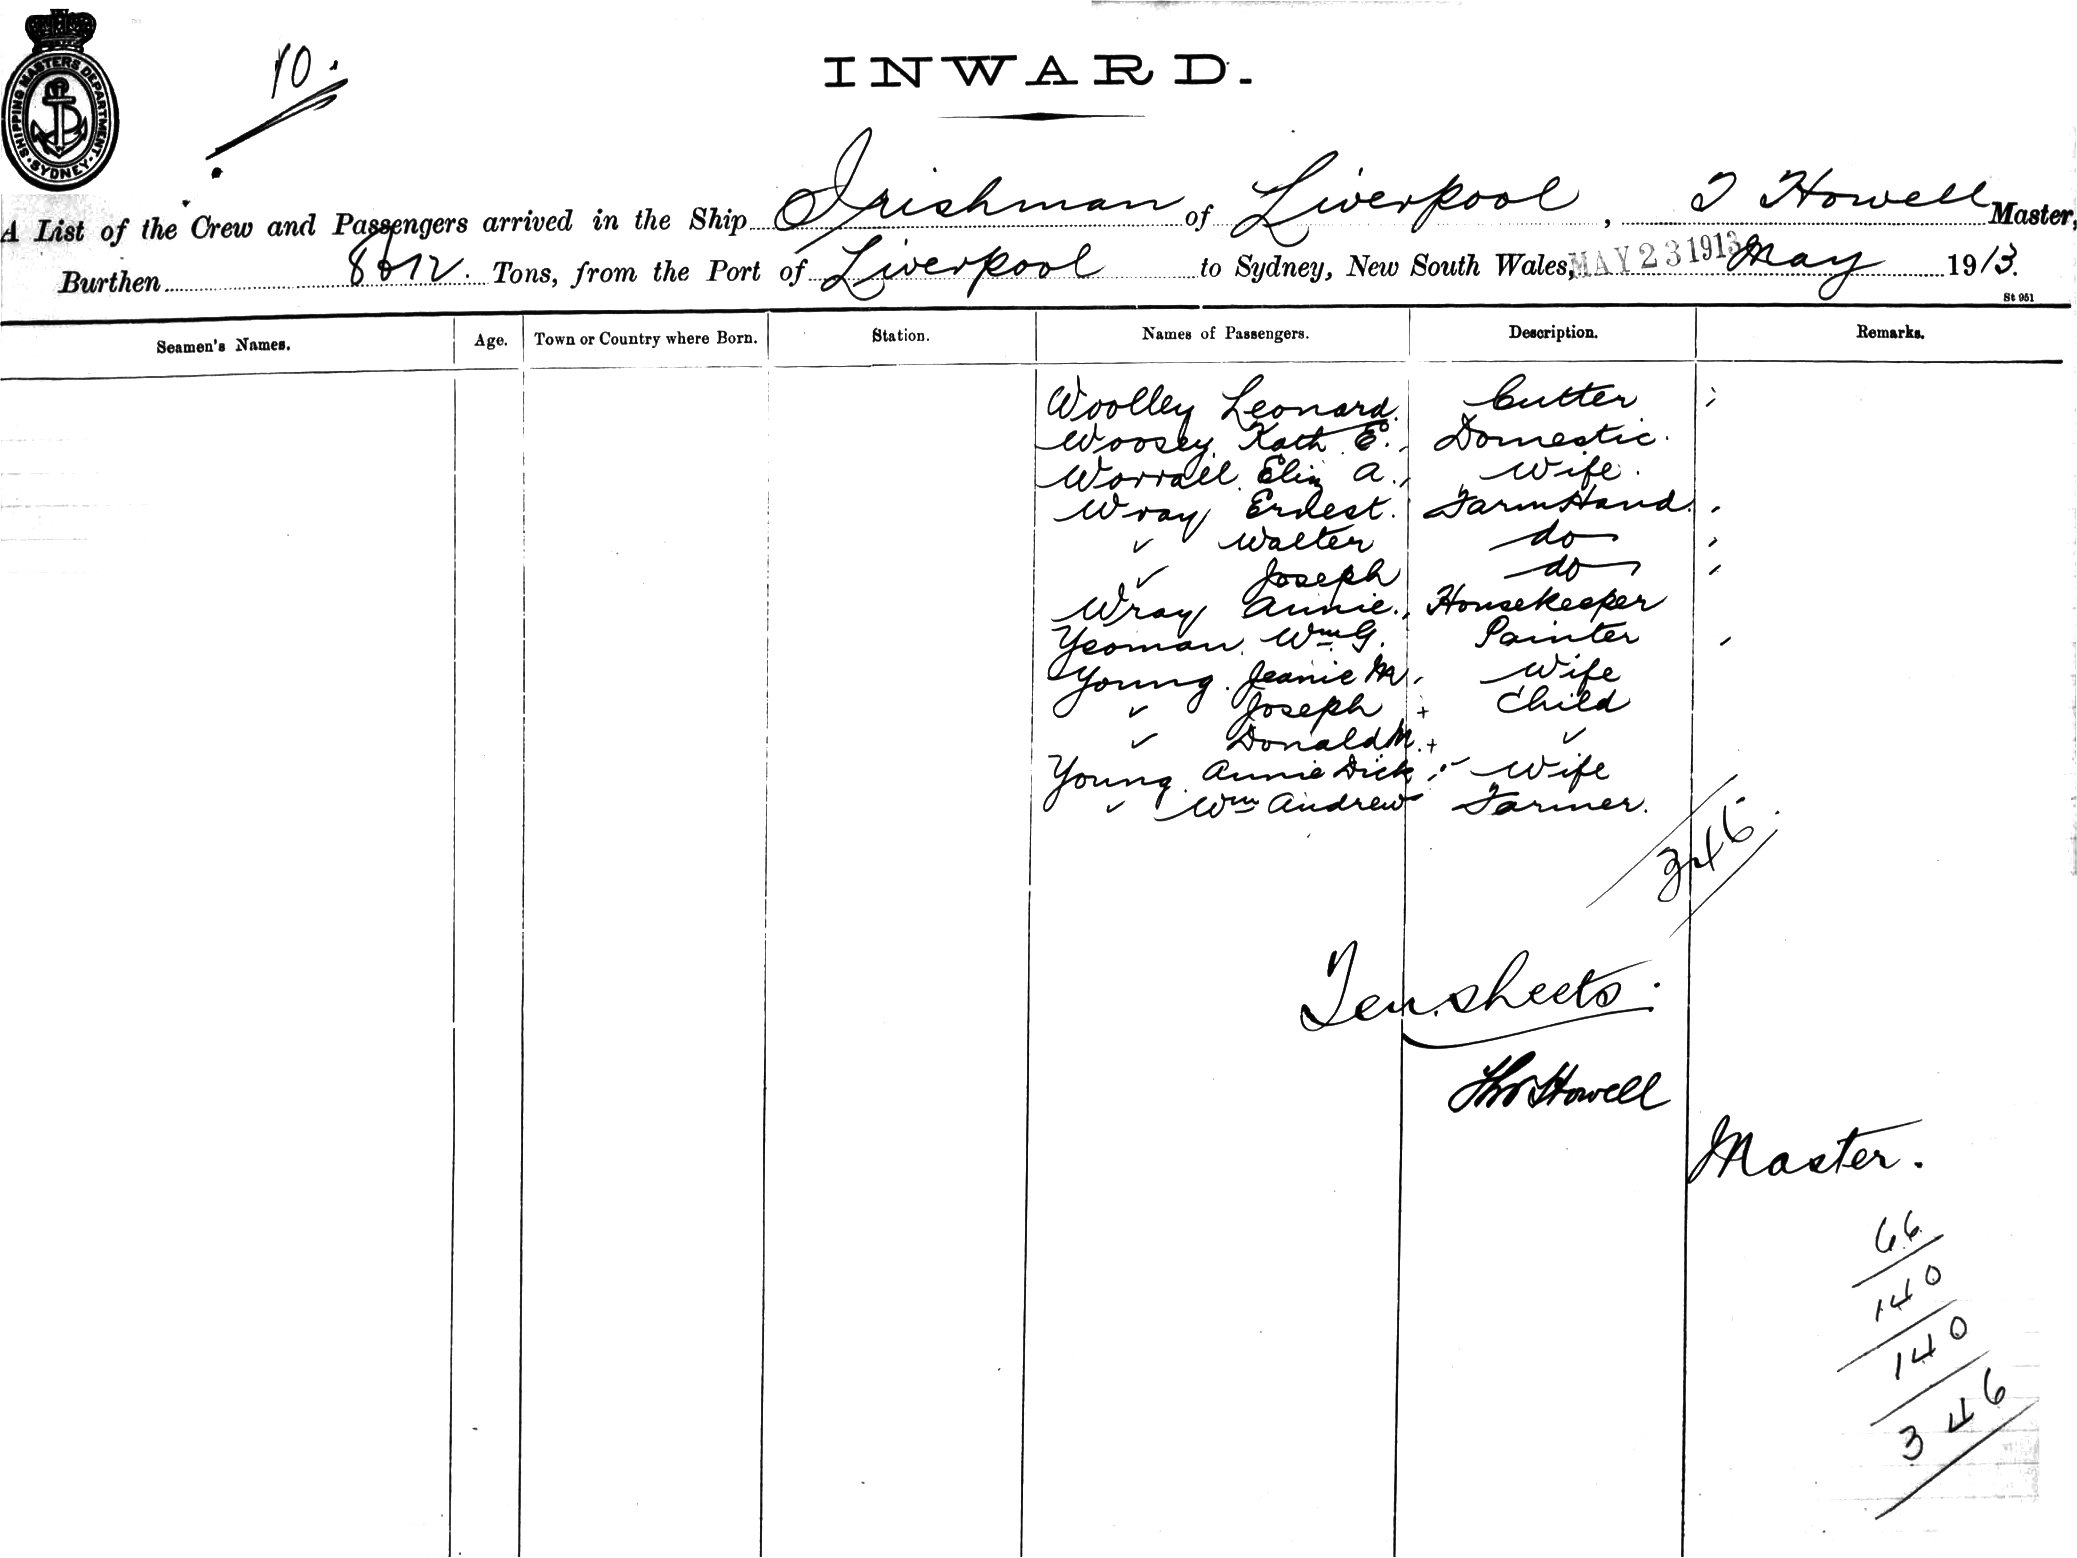 SHIPPING MASTERS DEPARTMENT · SYDNEY ·
10.
INWARD.
A List of the Crew and Passengers arrived in the Ship Irishman of Liverpool, T Howell Master,
Burthen Tons, from the Port of Liverpool to Sydney, New South Wales, MAY 23 1913 May 1913.
St 951
Seamen's Names. Age. Town or Country where Born. Station. Names of Passengers. Description. Remarks.
Woolley Leonard. Cutter
Woosey Kath E. Domestic.
Worrall Eliz A. Wife.
Wray Ernest. Farm Hand.
✓ Walter do
✓ Joseph do
Wray Annie. Housekeeper
Yeoman Wm G. Painter
Young Jeanie M. Wife
✓ Joseph + Child
✓ Donald M. + ✓
Young Annie Dick Wife
✓ Wm Andrew Farmer.
346.
Ten sheets.
Thos Howell
Master.
66
140
140
346